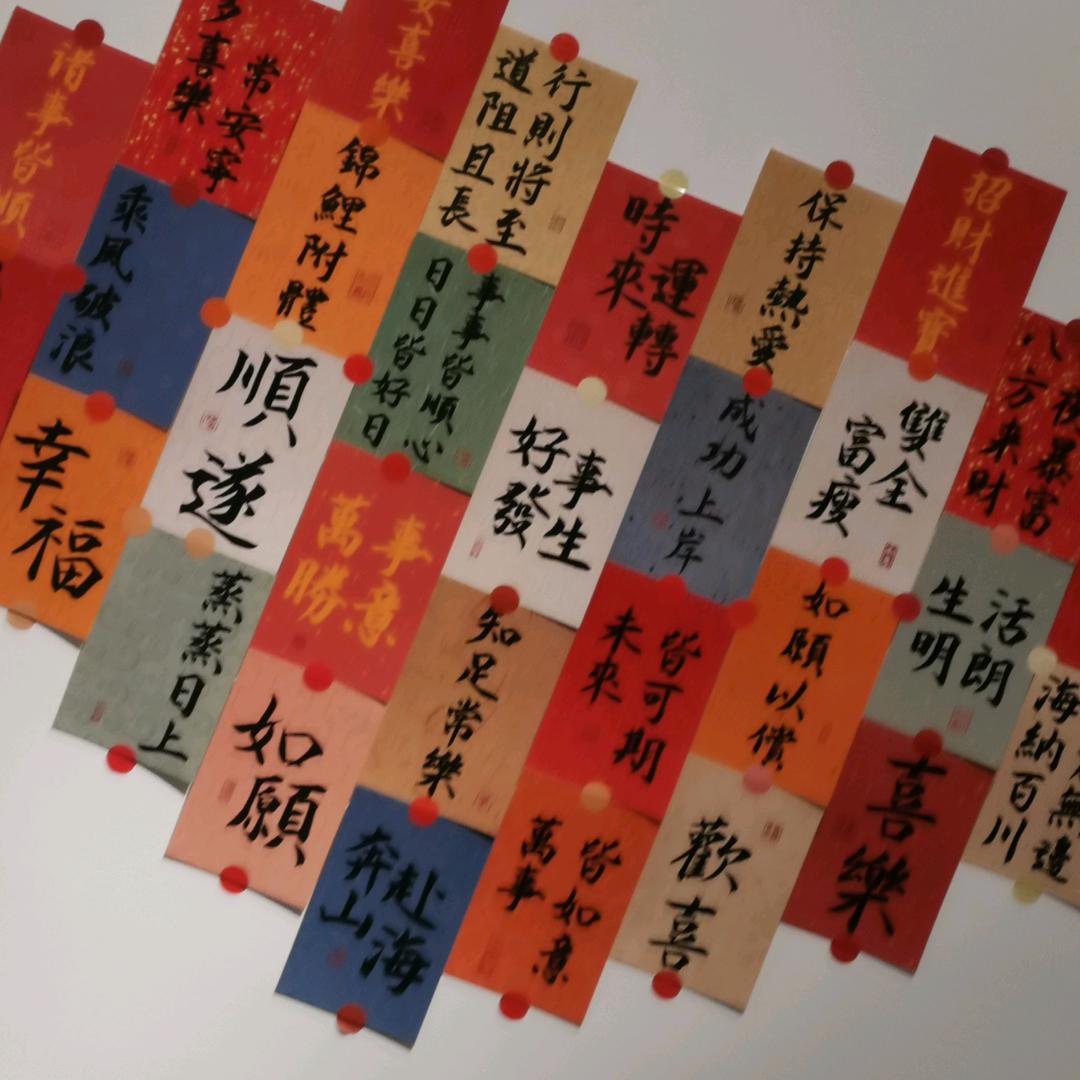 事皆順
常安寧
多喜樂
安喜樂
道阻且長
行則將至
乘風破浪
錦鯉附體
時來
運轉
保持熱愛
招財進寶
幸福
順遂
事事皆順心
日日皆好日
好事
發生
成功上岸
富瘦
雙全
夜暴富
八方来财
蒸蒸日上
萬事
勝意
知足常樂
未來
皆可期
如願以償
生活
明朗
海納百川
無邊
如願
奔赴
山海
萬事
皆如意
歡喜
喜樂